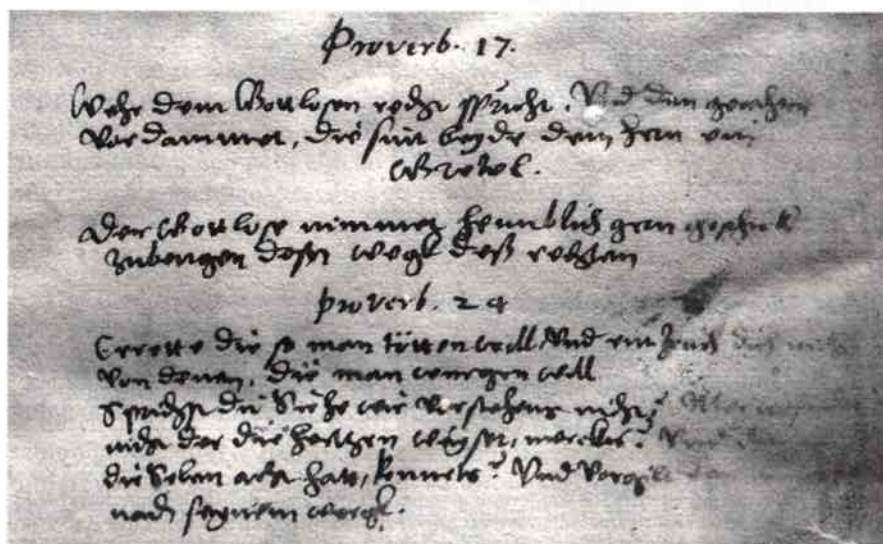 Proverb. 17.
Wehr dem Gottlosen recht spricht. Und den gerechten
verdammet, die sint beyde dem hern ein
Grewel.
Der Gottlose nimmet heimblich gern geschenk
zubeugen den wegk deß rechten
Proverb. 24
Errette die so man tötten will, Und ent Zeuch dich nicht
von denen, die man wurgen will
Sprichst du Siehe wir verstehens nicht;
nicht der die hertzen weyset, mercks? Und
die Selen acht hatt, kennets? Und vorgilt
nach seynem wergk.